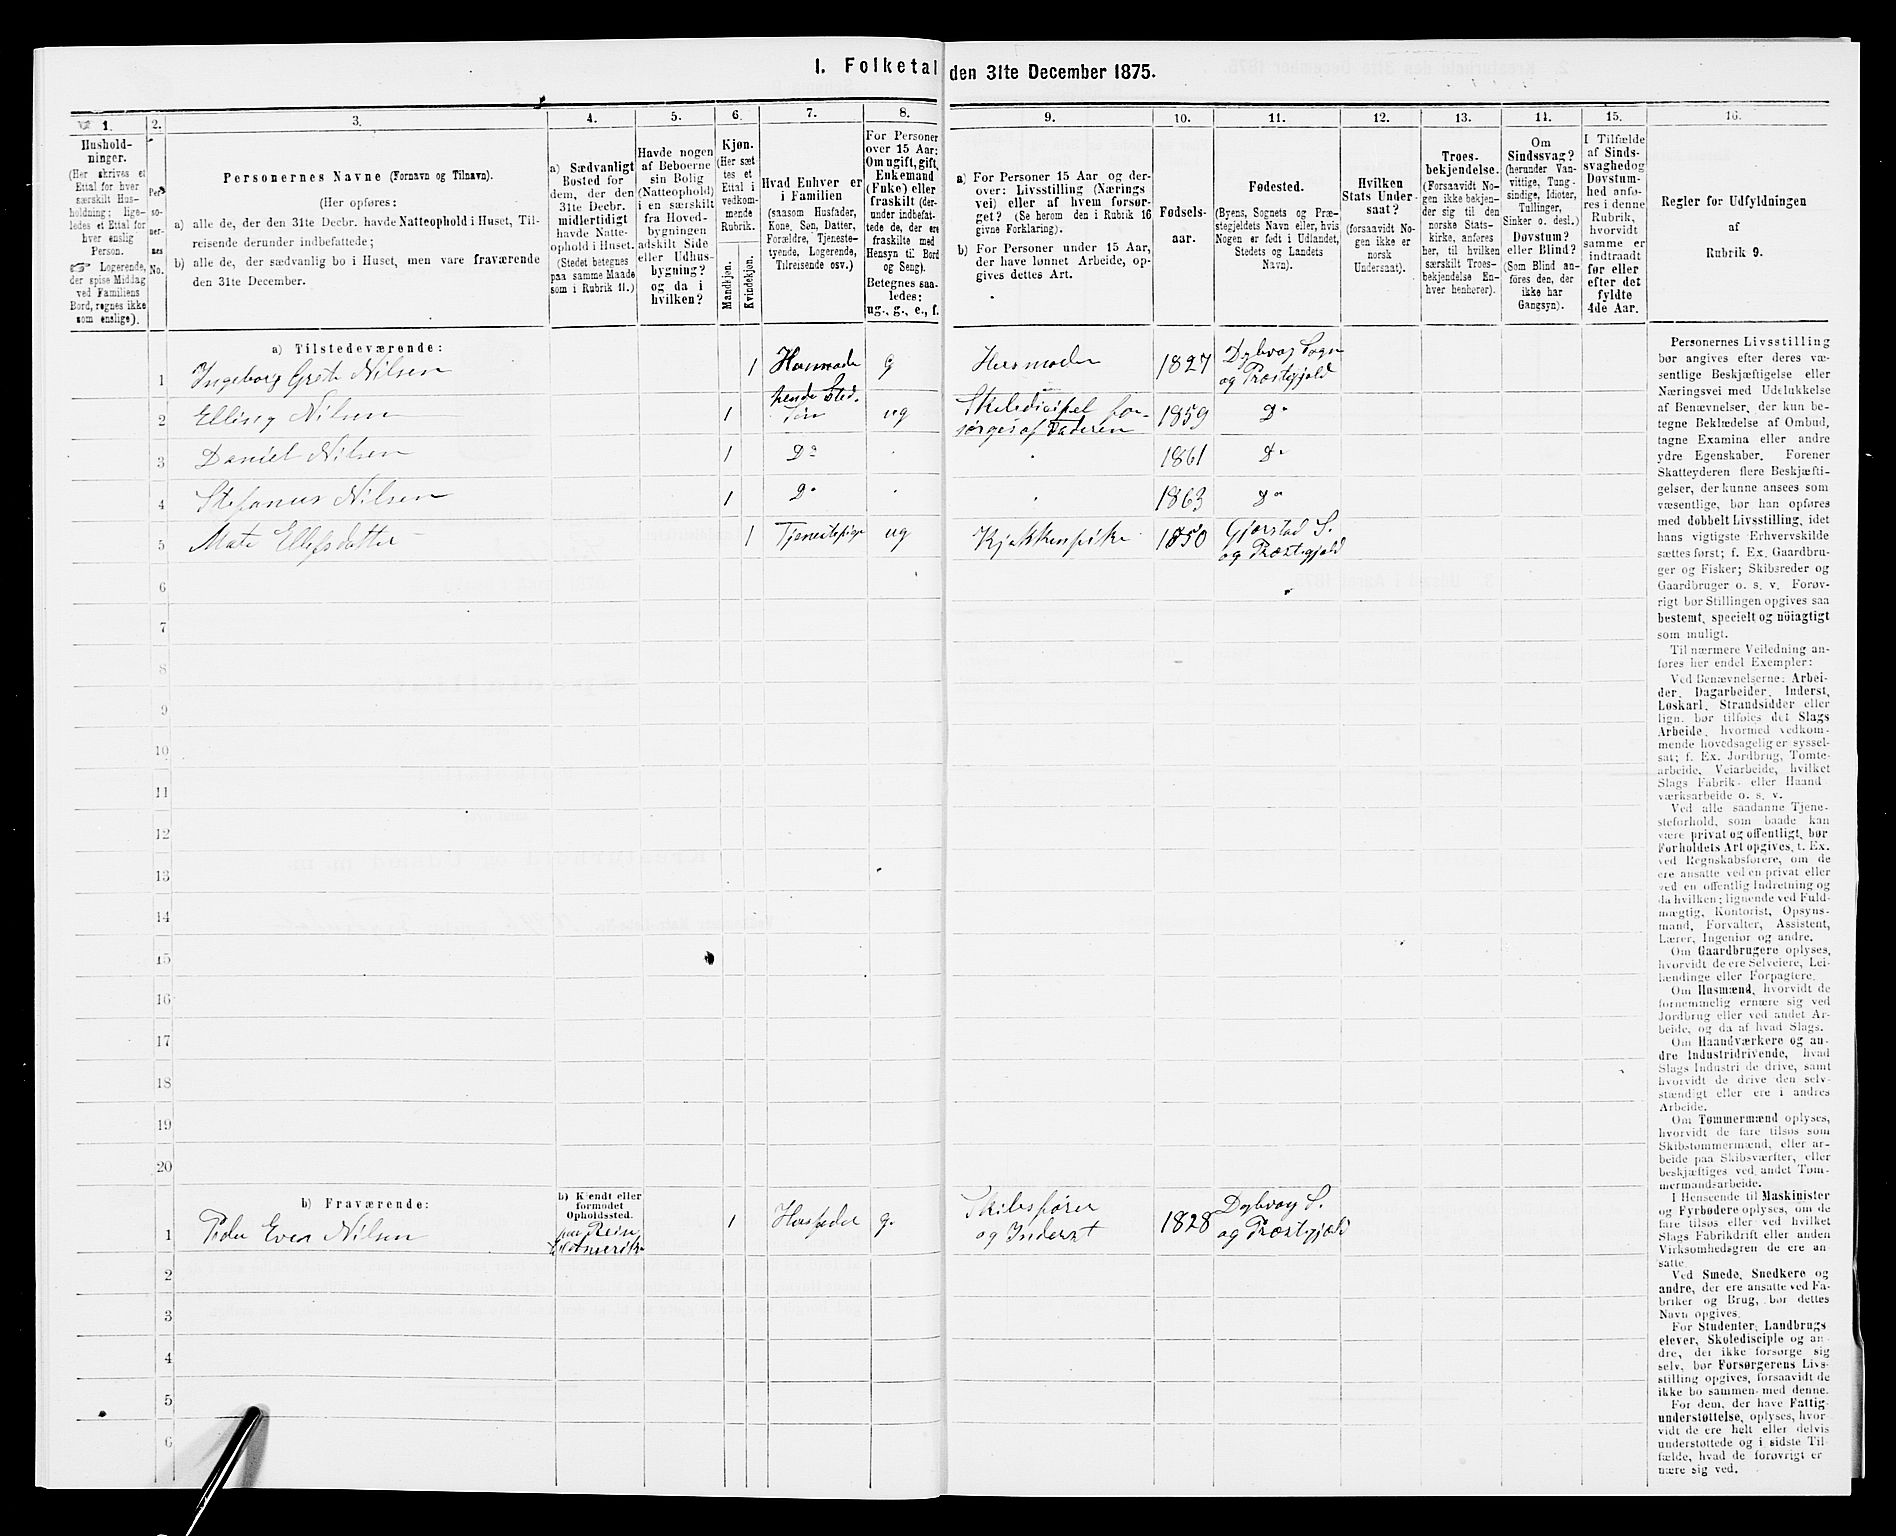 I. Folketal den 31te December 1875.
1.
2.
3.
4.
5.
6.
7.
8.
9.
10.
11.
12.
13.
14.
15.
16.
Hushold-
ninger.
(Her skrives et
Ettal for hver
særskilt Hus-
holdning; lige-
ledes et Ettal for
hver enslig
Person.
☞ Logerende,
der spise Middag
ved Familiens
Bord, regnes ikke
som enslige).
Per-
so-
ner-
nes
No.
Personernes Navne (Fornavn og Tilnavn).
(Her opføres:
a) alle de, der den 31te Decbr. havde Natteophold i Huset, Til-
reisende derunder indbefattede;
b) alle de, der sædvanlig bo i Huset, men vare fraværende
den 31te December.
a) Sædvanligt
Bosted for
dem, der den
31te Decbr.
midlertidigt
havde Natte-
ophold i Huset.
(Stedet betegnes
paa samme Maade
som i Rubrik 11.)
Havde nogen
af Beboerne
sin Bolig
(Natteophold)
i en særskilt
fra Hoved-
bygningen
adskilt Side
eller Udhus-
bygning?
og da i
hvilken?
Kjøn.
(Her sæt
tes et
Ettal i
vedkom-
mende
Rubrik.
Mandkjøn.
Kvindekjøn.
Hvad Enhver er
i Familien
(saasom Husfader,
Kone, Søn, Datter,
Forældre, Tjeneste-
tyende, Logerende,
Tilreisende osv.)
For Personer
over 15 Aar:
Om ugift, gift,
Enkemand
(Enke) eller
fraskilt (der-
under indbefat-
tede de, der ere
fraskilte med
Hensyn til Bord
og Seng).
Betegnes saa-
ledes:
ug., g., e., f.
a) For Personer 15 Aar og der-
over: Livsstilling (Nærings
vei) eller af hvem forsør-
get? (Se herom den i Rubrik 16
givne Forklaring).
b) For Personer under 15 Aar,
der have lønnet Arbeide, op-
gives dettes Art.
Fødsels-
aar.
Fødested.
(Byens, Sognets og Præ-
stegjeldets Navn eller, hvis
Nogen er født i Udlandet,
Stedets og Landets
Navn).
Hvilken
Stats Under-
saat?
(forsaavidt No-
gen ikke er
norsk
Undersaat).
Troes-
bekjendelse.
(Forsaavidt No-
gen ikke bekjen-
der sig til den
norske Stats-
kirke, anføres
her, til hvilken
særskilt Troes-
bekjendelse En-
hver henhører).
Om
Sindssvag?
(herunder Van-
vittige, Tung-
sindige, Idioter,
Tullinger,
Sinker o. desl.)
Døvstum?
eller Blind?
(Som Blind an-
føres den, der
ikke har
Gangsyn).
I Tilfælde
af Sinds-
svaghed og
Døvstum-
hed anfø-
res i denne
Rubrik,
hvorvidt
samme er
indtraadt
før eller
efter det
fyldte
4de Aar.
Regler for Udfyldningen
af
Rubrik 9.
a) Tilstedeværende:
1 Ingeborg Grete Nilsen 1 g Husmoder 1827 Dybvag Sogn
og Præstegjeld
2 Ellisiy Nilsen 1 Søn ug Skoledisipel for-
sørges af Faderen 1859 Do
3 Daniel Nilsen 1 Do 1861 Do
4 Stefanus Nilsen 1 Do 1863 Do
5 Mate Ellefsdatter 1 Tjenestepige ug Kjøkkenpike 1850 Gjerstad S.
og Præstegjeld
6
7
8
9
10
11
12
13
14
15
16
17
18
19
20
b) Fraværende:
b) Kjendt eller
formodet
Opholdssted.
1 Peder Even Nilsen paa Reise
til Amerika 1 Husfader g. Skibsfører
og Inderst 1828 Dybvag S.
og Præstegjeld
2
3
4
5
6
Personernes Livsstilling
bør angives efter deres væ-
sentlige Beskjæftigelse eller
Næringsvei med Udelukkelse
af Benævnelser, der kun be-
tegne Beklædelse af Ombud,
tagne Examina eller andre
ydre Egenskaber. Forener
Skatteyderen flere Beskjæfti-
gelser, der kunne ansees som
væsentlige, bør han opføres
med dobbelt Livsstilling, idet
hans vigtigste Erhvervskilde
sættes først; f. Ex. Gaardbru-
ger og Fisker; Skibsreder og
Gaardbruger o. s. v. Forøv-
rigt bør Stillingen opgives saa
bestemt, specielt og nöiagtigt
som muligt.
Til nærmere Veiledning an-
føres her endel Exempler:
Ved Benævnelserne: Arbei-
der, Dagarbeider, Inderst,
Løskarl, Strandsidder eller
lign. bør tilføies det Slags
Arbeide, hvormed vedkom-
mende hovedsagelig er syssel-
sat; f. Ex. Jordbrug, Tomte-
arbeide, Veiarbeide, hvilket
Slags Fabrik- eller Haand
værksarbeide o. s. v.
Ved alle saadanne Tjene-
steforhold, som baade kan
være privat og offentligt, bør
Forholdets Art opgives, t. Ex.
ved Regnskabsførere, om de
ere ansatte ved en privat eller
ved en offentlig Indretning og
da hvilken; lignende ved Fuld-
mægtig, Kontorist, Opsyns-
mand, Forvalter, Assistent,
Lærer, Ingeniør og andre.
Om Gaardbrugere oplyses,
hvorvidt de ere Selveiere, Lei-
lændinge eller Forpagtere.
Om Husmænd, hvorvidt de
fornemmelig ernære sig ved
Jordbrug eller ved andet Ar-
beide, og da af hvad Slags.
Om Haandværkere og an-
dre Industridrivende, hvad
Slags Industri de drive, samt
hvorvidt de drive den selv-
stændigt eller ere i andres
Arbeide.
Om Tømmermænd oplyses,
hvorvidt de fare tilsøs som
Skibstømmermænd, eller ar-
beide paa Skibsværfter, eller
beskjæftiges ved andet Tøm-
mermandsarbeide.
I Henseende til Maskinister
og Fyrbødere oplyses, om de
fare tilsøs eller ved hvilket
Slags Fabrikdrift eller anden
Virksomhedsgren de ere an-
satte.
Ved Smede, Snedkere og
andre, der ere ansatte ved Fa-
briker og Brug, bør dettes
Navn opgives.
For Studenter, Landbrugs
elever, Skoledisciple og an-
dre, der ikke forsørge sig
selv, bør Forsørgerens Livs-
stilling opgives, forsaavidt de
ikke bo sammen med denne.
For dem, der have Fattig-
understøttelse, oplyses, hvor-
vidt de ere helt eller delvis
understøttede og i sidste Til-
fælde, hvad de forøvrigt er-
nære sig ved.